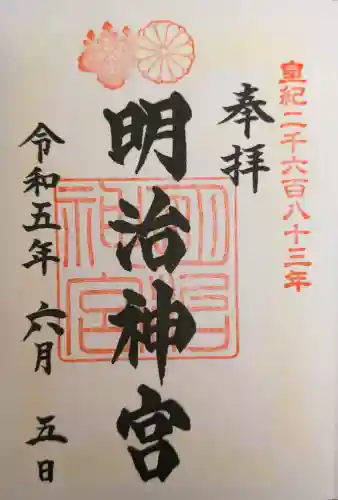 皇紀二千六百八十三年
奉拝
明治神宮
明治
神宮
令和五年 六月 五日